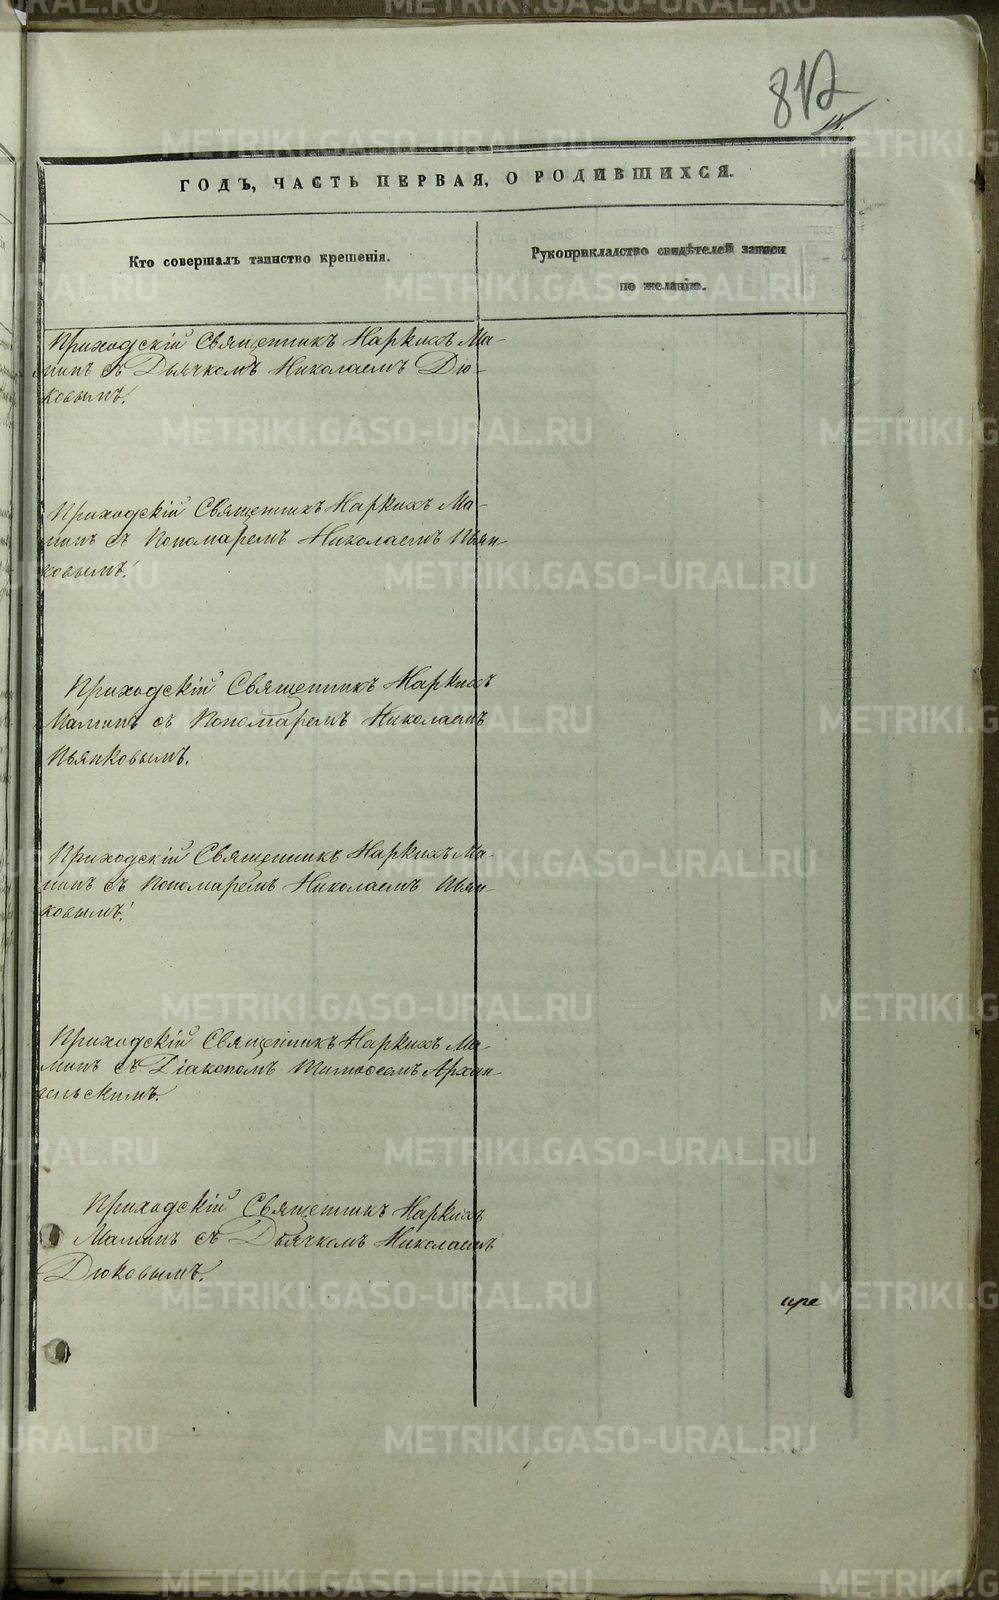 812
ГОДЪ, ЧАСТЬ ПЕРВАЯ, О РОДИВШИХСЯ.
Кто совершалъ таинство крещенія.
Рукоприкладство свидѣтелей записи
по желанію.
Приходскій Священникъ Наркисъ Ма-
минъ съ Дьячкомъ Николаемъ Дю-
ковымъ.
Приходскій Священникъ Наркисъ Ма-
минъ съ Пономаремъ Николаемъ Пьян-
ковымъ.
Приходскій Священникъ Наркисъ
Маминъ съ Пономаремъ Николаемъ
Пьянковымъ.
Приходскій Священникъ Наркисъ Ма-
минъ съ Пономаремъ Николаемъ Пьян-
ковымъ.
Приходскій Священникъ Наркисъ Ма-
минъ съ Діакономъ Архан-
гельскимъ.
Приходскій Священникъ Наркисъ
Маминъ съ Дьячкомъ Николаемъ
Дюковымъ.
METRIKI.GASO-URAL.RU